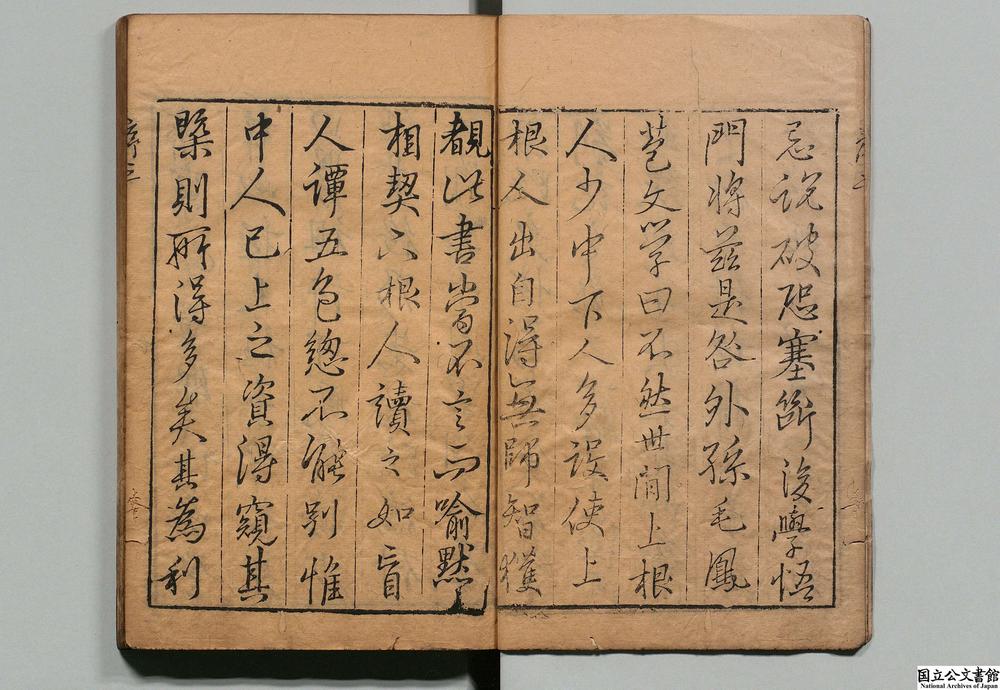 忌說破恐塞斷後學悟
門將茲是咎外孫毛鳳
苞文學曰不然世間上根
人少中下人多設使上
根人出自得無師智獲
覩此書當不言而喻默
相契下根人讀之如盲
人譚五色總不能別惟
中人已上之資得窺其
槩則所得多矣其為利
国立公文書館
National Archives of Japan